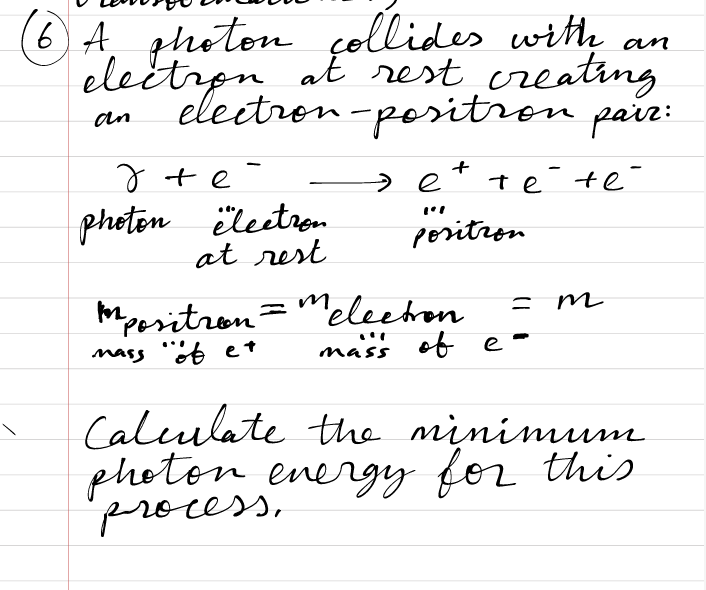 ⑥ A photon collides with an
electron at rest creating
an electron-positron pair:
γ + e⁻ ⟶ e⁺ + e⁻ + e⁻
photon electron positron
at rest
m_positron = m_electron = m
mass of e+ mass of e-
Calculate the minimum
photon energy for this
process.